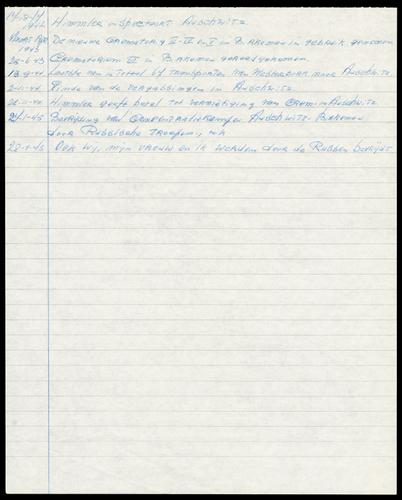 Himmler inspecteert Auschwitz
1943 De nieuwe Crematoria en V in Birkenau in gebruik genomen
Crematorium III in Birkenau gereedgekomen
Laatste van in totaal 67 transporten van Westerbork naar Auschwitz
2-11-44 Einde van de vergassingen in Auschwitz
Himmler geeft bevel tot vernietiging van Crema in Auschwitz
Bevrijding van Concentratiekampen Auschwitz-Birkenau
door Russische troepen,
Ook wij, mijn vrouw en ik werden door de Russen bevrijd